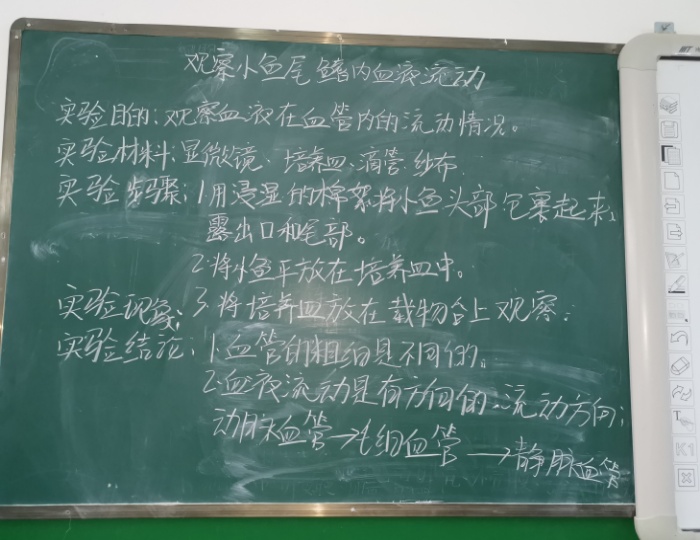 观察小鱼尾鳍内血液流动
实验目的:观察血液在血管内的流动情况。
实验材料:显微镜、培养皿、滴管、纱布
实验步骤:1用浸湿的棉絮将小鱼头部包裹起来,
露出口和尾部。
2.将小鱼平放在培养皿中。
实验现象:3.将培养皿放在载物台上观察:
实验结论:1.血管的粗细是不同的。
2.血液流动是有方向的.流动方向:
动脉血管→毛细血管→静脉血管
T
K1